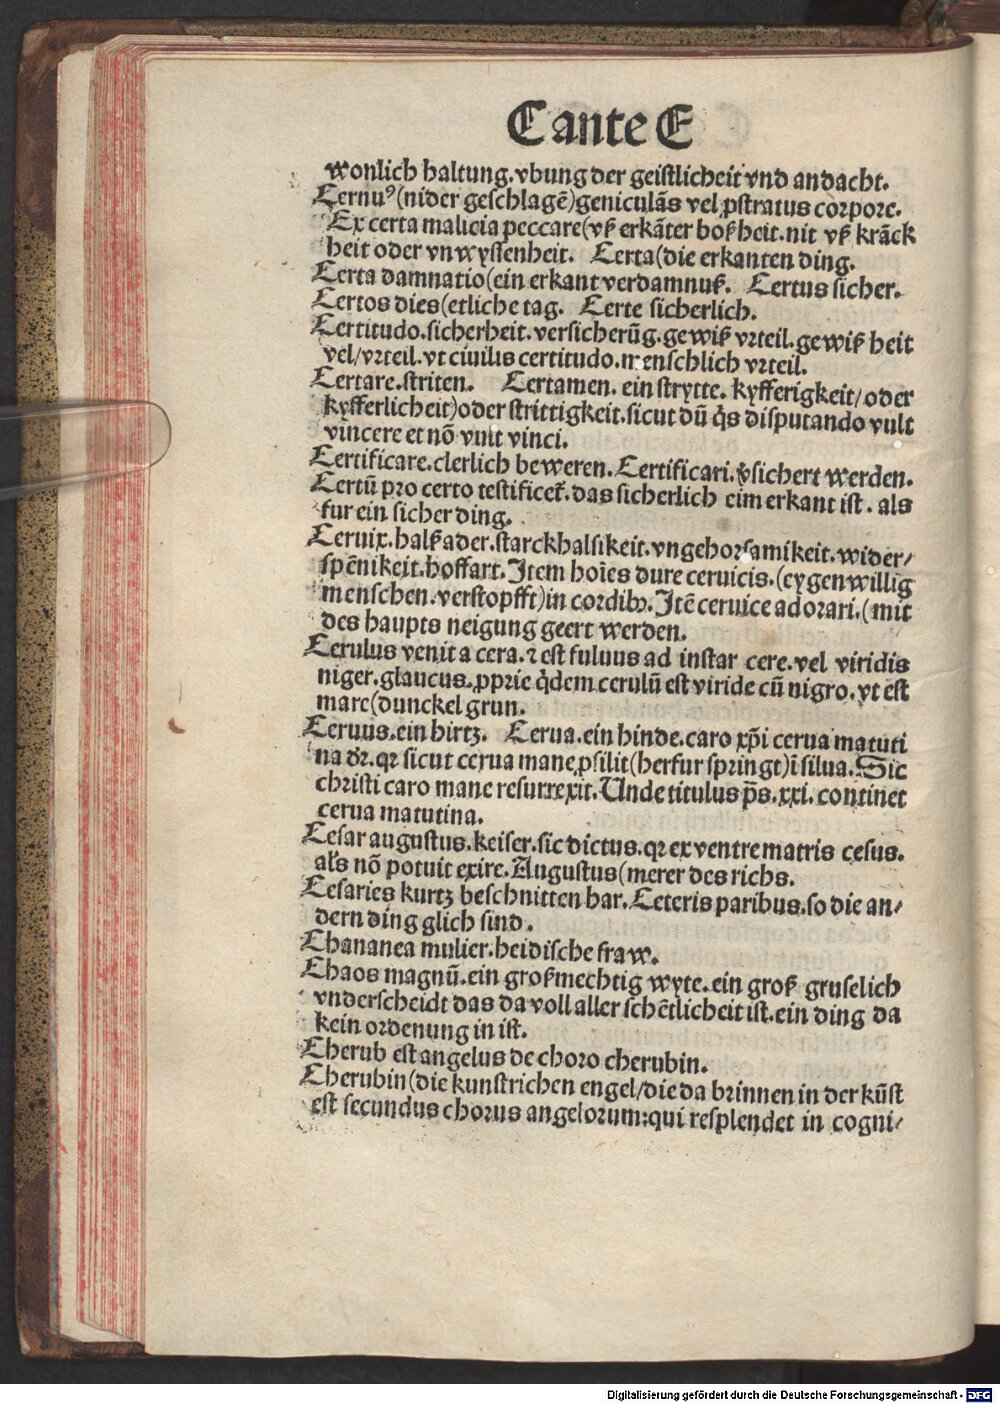 C ante E
wonlich haltung.vbung der geistlicheit vnd andacht.
Cernuꝰ(nider geschlagē)geniculãs vel ꝓstratus corpore.
Ex certa malicia peccare(vß erkãter boßheit.nit vß krãck
heit oder vnwyssenheit. Certa(die erkanten ding.
Certa damnatio(ein erkant verdamnuß. Certus sicher.
Certos dies(etliche tag. Certe sicherlich.
Certitudo.sicherheit.versicherũg.gewiß vrteil.gewißheit
vel/vrteil.vt ciuilis certitudo.menschlich vrteil.
Certare.striten. Certamen.ein strytte.kyfferigkeit/oder
kyfferlicheit)oder strittigkeit.sicut dũ q̇s disputando vult
vincere et nõ vult vinci.
Certificare.clerlich beweren.Certificari.ꝟsichert werden.
Certũ pro certo testificet᷑.das sicherlich eim erkant ist.als
fur ein sicher ding.
Ceruix.halßader.starckhalsikeit.vngehorsamikeit.wider/
spēnikeit.hoffart.Item hoīes dure ceruicis.(eygenwillig
menschen.verstopfft)in cordibꝰ.Itē ceruice adorari.(mit
des haupts neigung geert werden.
Cerulus venit a cera.⁊ est fuluus ad instar cere.vel viridis
niger.glaucus.ꝓprie q̇dem cerulũ est viride cũ nigro.vt est
mare(dunckel grun.
Ceruus.ein hirtz. Cerua.ein hinde.caro xp̄i cerua matuti
na dr̄.qꝛ sicut cerua mane ꝓsilit(herfur springt)ī silua.Sic
christi caro mane resurrexit.Unde titulus ps̄.xxi.continet
cerua matutina.
Cesar augustus.keiser.sic dictus.qꝛ ex ventre matris cesus.
als̄ nõ potuit exire.Augustus(merer des richs.
Cesaries kurtz beschnitten har.Ceteris paribus.so die an/
dern ding glich sind.
Chananea mulier.heidische fraw.
Chaos magnũ.ein großmechtig wyte.ein groß gruselich
vnderscheidt das da voll aller schētlicheit ist.ein ding da
kein ordenung in ist.
Cherub est angelus de choro cherubin.
Cherubin(die kunstrichen engel/die da brinnen in der kũst
est secundus chorus angelorum:qui resplendet in cogni/
Digitalisierung gefördert durch die Deutsche Forschungsgemeinschaft - DFG